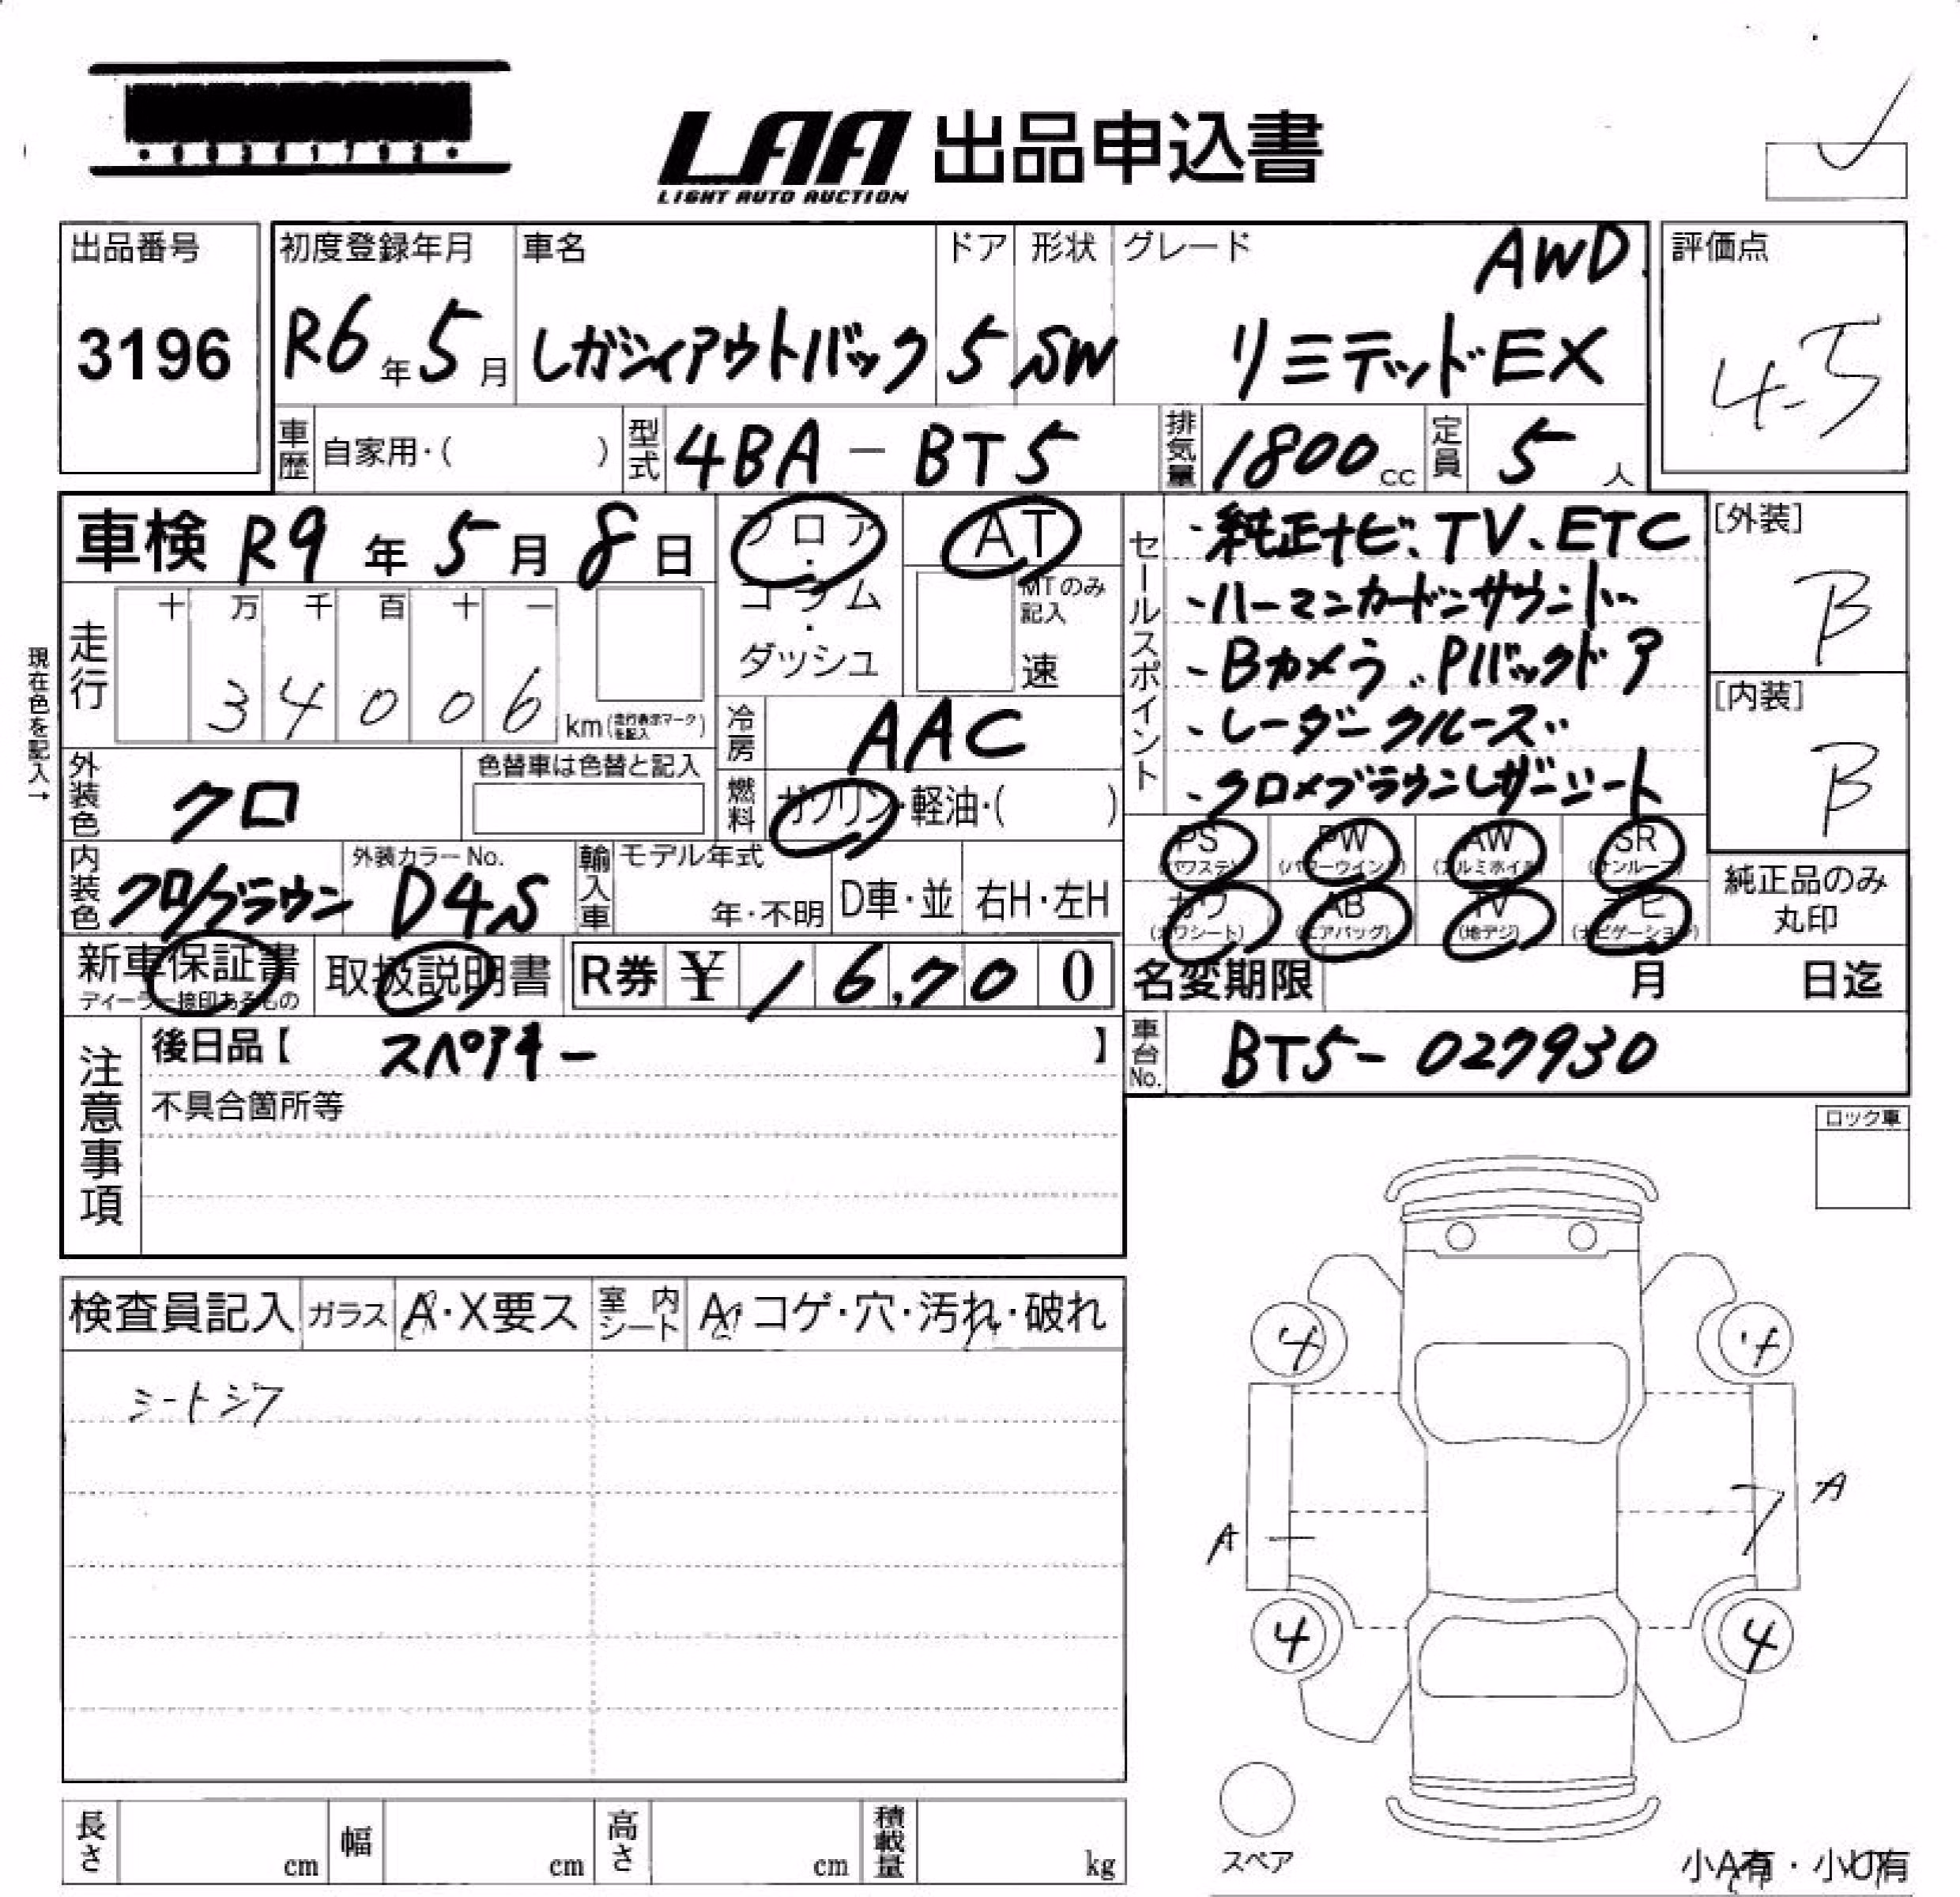 LAA 出品申込書
LIGHT AUTO AUCTION
出品番号
3196
初度登録年月
R6年5月
車名
レガシィアウトバック
ドア
5
形状
SW
グレード
AWD
リミテッドEX
評価点
4.5
車歴 自家用・( )
型式 4BA-BT5
排気量 1800cc
定員 5人
車検 R9年5月8日
現在色を記入→
走行
十 万 千 百 十 一
3 4 0 0 6 km(走行表示マークを記入)
フロア・コラム・ダッシュ
AT
MTのみ記入
速
冷房 AAC
燃料 ガソリン・軽油・( )
外装色 クロ
色替車は色替と記入
内装色 クロ/ブラウン
外装カラーNo. D4S
輸入車 モデル年式
年・不明 D車・並 右H・左H
セールスポイント
・純正ナビ、TV、ETC
・ハーマンカードンサウンド
・Bカメラ、Pバックドア
・レーダークルーズ
・クロ×ブラウンレザーシート
[外装]
B
[内装]
B
PS (パワステ) PW (パワーウインド) AW (アルミホイル) SR (サンルーフ)
カワ (カワシート) AB (エアバッグ) TV (地デジ) ナビ (ナビゲーション)
純正品のみ丸印
新車保証書 取扱説明書 R券 ¥16,700
ディーラー捺印あるもの
名変期限 月 日迄
車台No. BT5-027930
注意事項
後日品【 スペアキー 】
不具合箇所等
ロック車
検査員記入 ガラス A・X要ス 室内シート A コゲ・穴・汚れ・破れ
シートシワ
4 4
A
A
4 4
スペア
小A有・小U有
長さ cm 幅 cm 高さ cm 積載量 kg